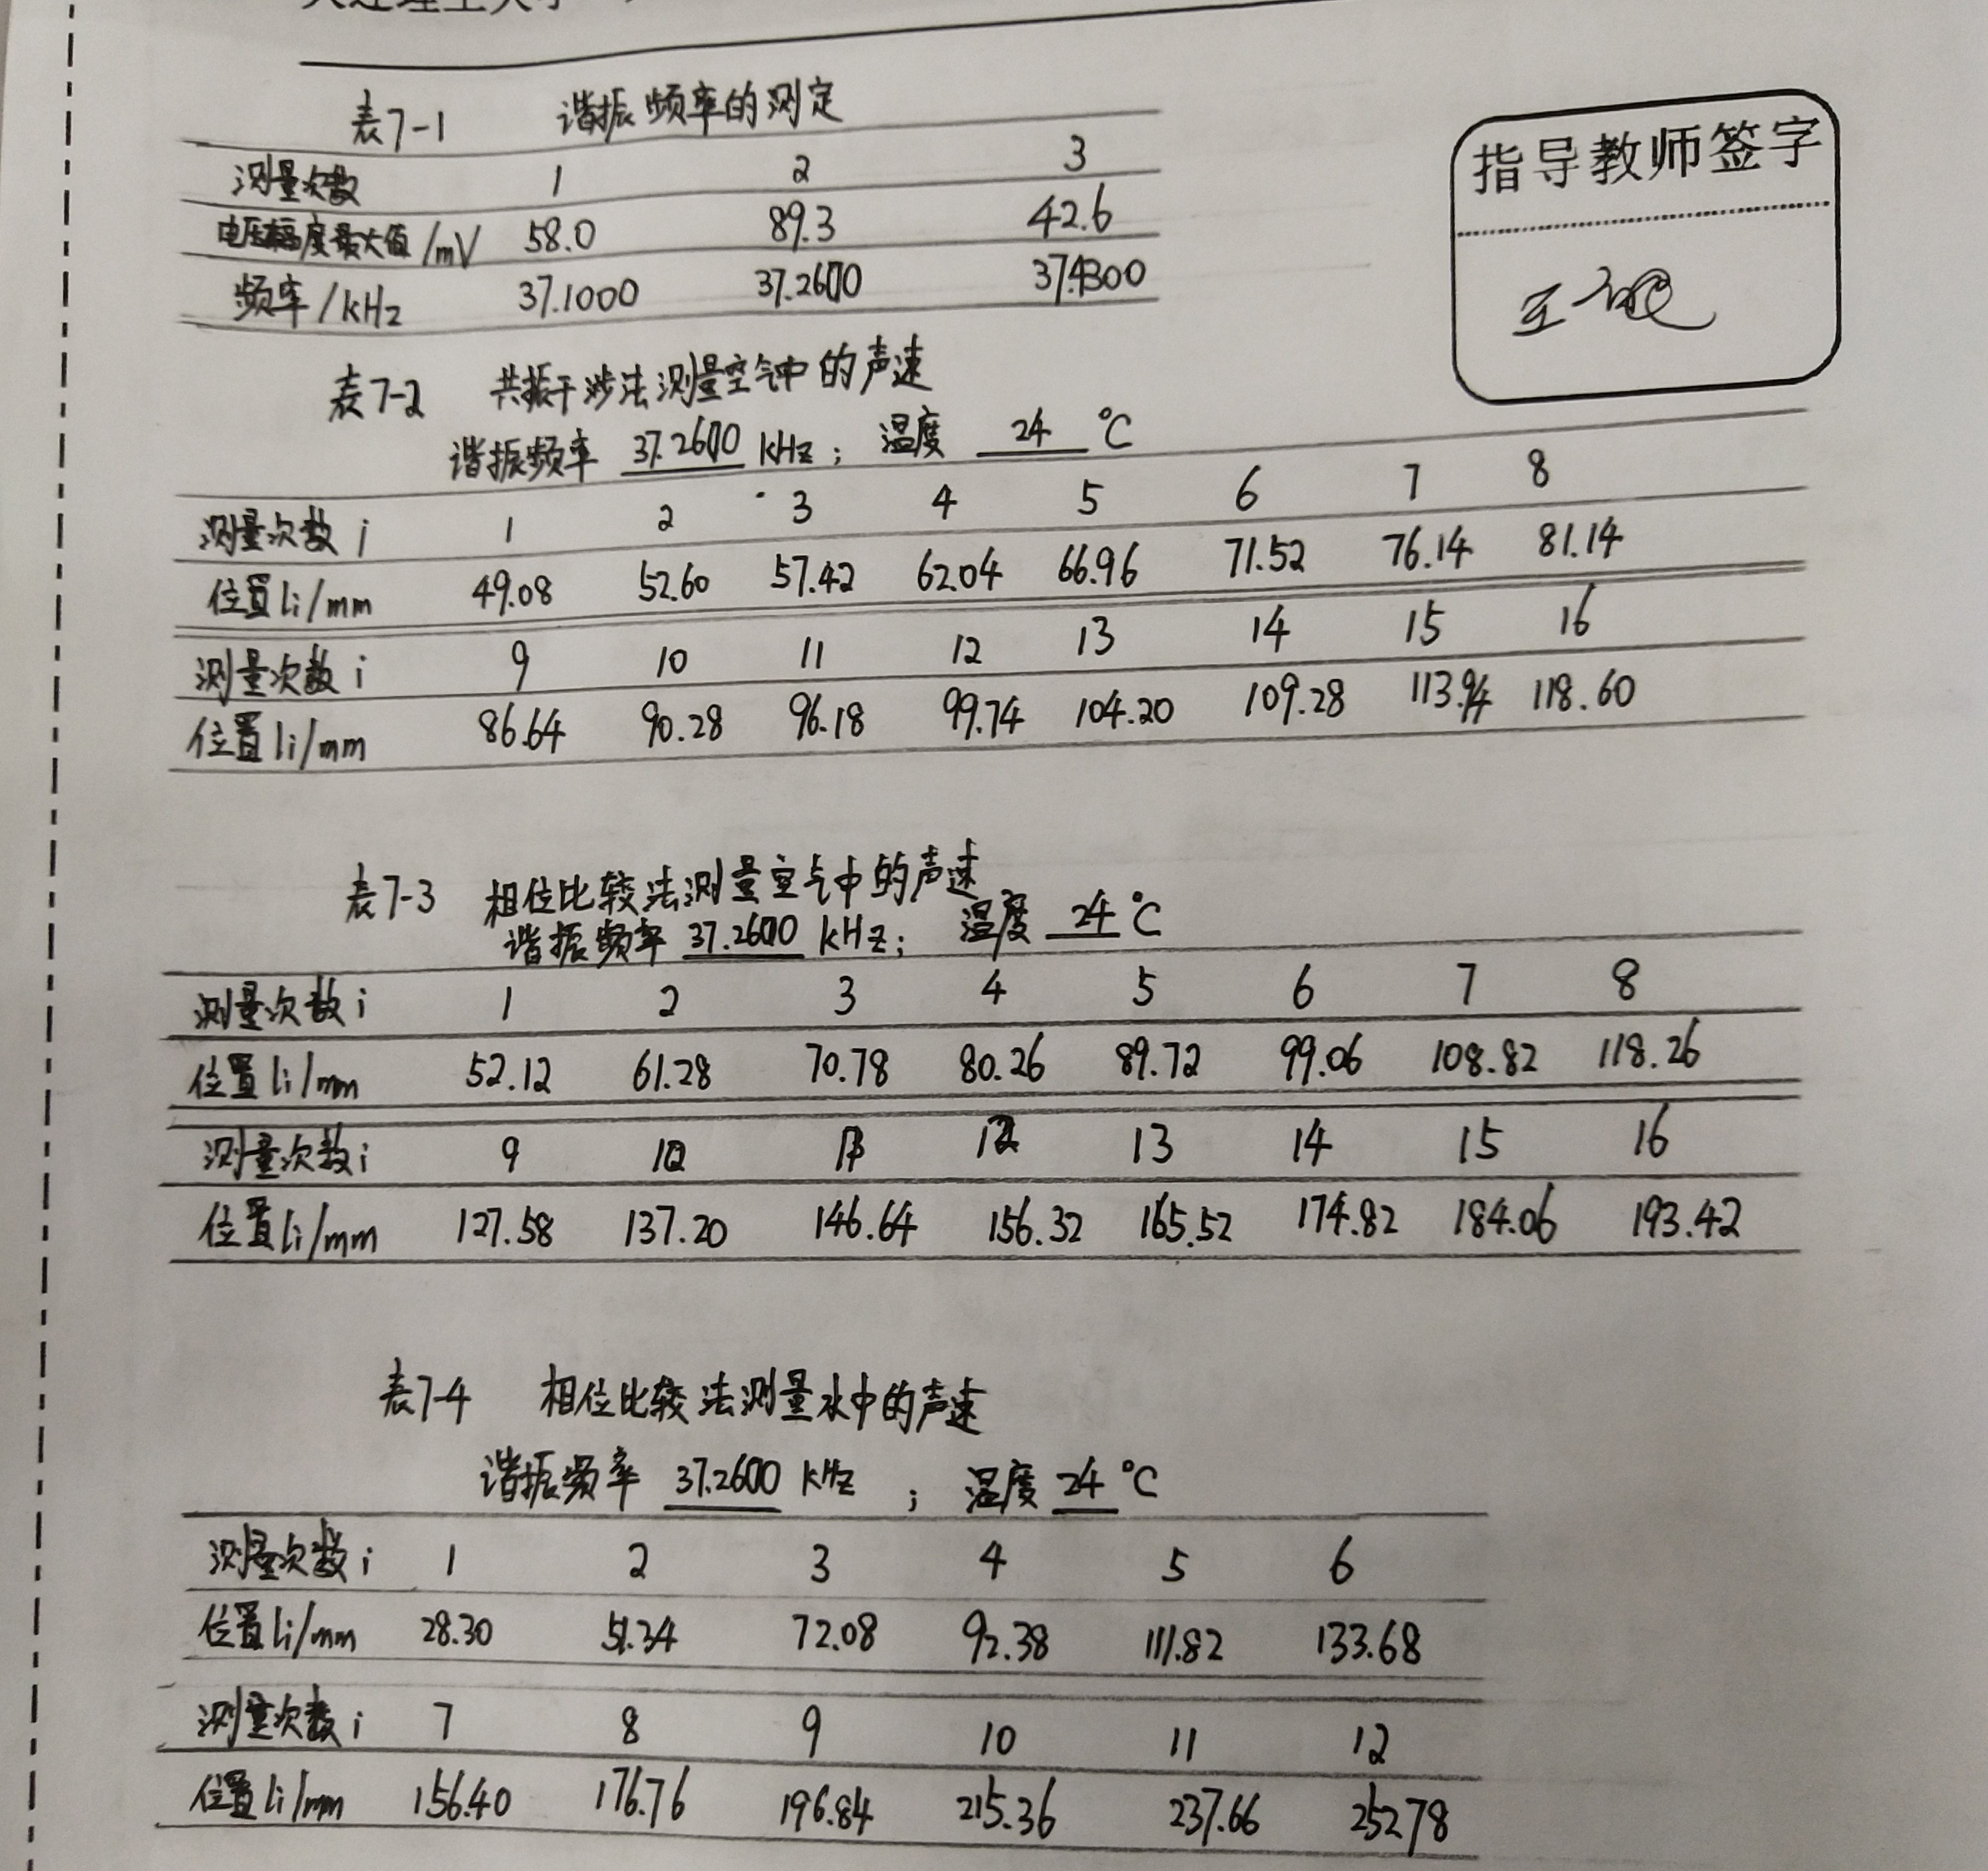 表7-1 谐振频率的测定
测量次数 1 2 3
电压幅度最大值/mV 58.0 89.3 42.6
频率/kHz 37.1000 37.2600 37.4300
指导教师签字
表7-2 共振干涉法测量空气中的声速
谐振频率 37.2600 kHz; 温度 24 ℃
测量次数 i 1 2 3 4 5 6 7 8
位置 li/mm 49.08 52.60 57.42 62.04 66.96 71.52 76.14 81.14
测量次数 i 9 10 11 12 13 14 15 16
位置 li/mm 86.64 90.28 96.18 99.74 104.20 109.28 113.94 118.60
表7-3 相位比较法测量空气中的声速
谐振频率 37.2600 kHz; 温度 24 ℃
测量次数 i 1 2 3 4 5 6 7 8
位置 li/mm 52.12 61.28 70.78 80.26 89.72 99.06 108.82 118.26
测量次数 i 9 10 11 12 13 14 15 16
位置 li/mm 127.58 137.20 146.64 156.32 165.52 174.82 184.06 193.42
表7-4 相位比较法测量水中的声速
谐振频率 37.2600 kHz ; 温度 24 ℃
测量次数 i 1 2 3 4 5 6
位置 li/mm 28.30 51.34 72.08 92.38 111.82 133.68
测量次数 i 7 8 9 10 11 12
位置 li/mm 156.40 176.76 196.84 215.36 237.66 252.78